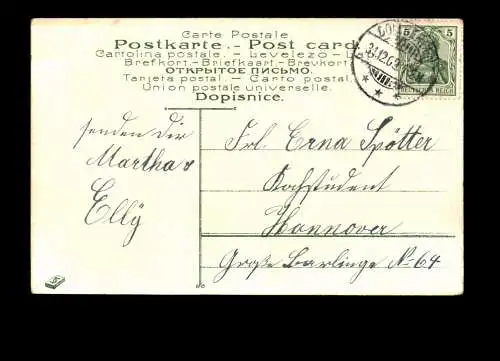 Carte Postale
Postkarte. - Post card.
Cartolina postale. - Levelező-L
Brefkort.-Briefkaart.-Brevkort
ОТКРЫТОЕ ПИСЬМО.
Tarjeta postal.-Carto postal.
Union postale universelle.
Dopisnice.
5 5
DEUTSCHES REICH
31.12.0
senden dir
Martha u
Elly
Frl. Erna Spötter
Hannover
Große Barlinge No 64